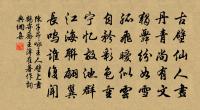 古壁仙人畫
丹青尚有文
獨舞紛如雪
孤飛曖似雲
自矜彩色重
寧憶故池群
江海聯翩翼
長鳴誰復聞
陳子昂咏主人壁上畫
鶴寄喬主簿崔著作